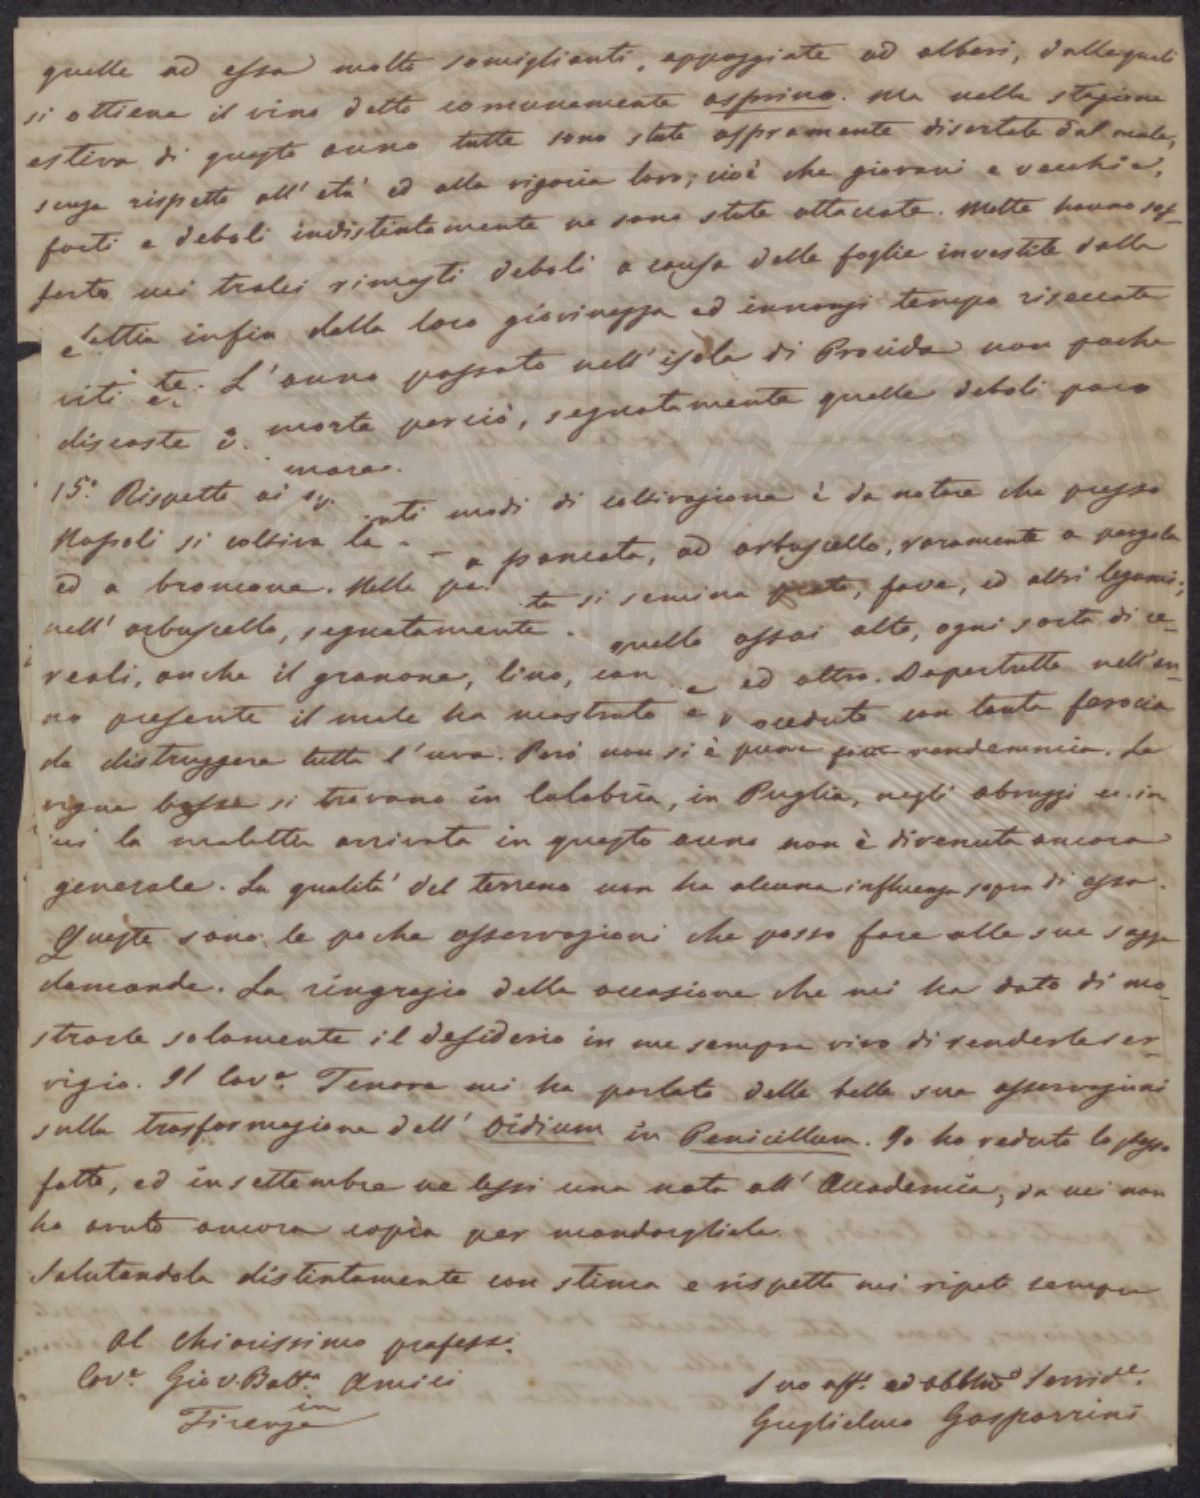 quelle ad essa molto somiglianti, appoggiate ad alberi, dalle quali
si ottiene il vino detto comunemente asprino. Ma nella stagione
estiva di questo anno tutte sono state aspramente disertate dal male,
senza rispetto all'età ed alla vigoria loro; cioè che giovani e vecchie,
forti e deboli indistintamente ne sono state attaccate. Molte hanno sof-
ferto nei tralci rimasti deboli a causa delle foglie investite dalla
lattia infin dalla loro giovinezza ed innanzi tempo riseccate
viti te. L'anno passato nell'isola di Procida non poche
discoste morte perciò, segnatamente quelle deboli poco
mare.
15.° Rispetto ai nti modi di coltivazione è da notare che presso
Napoli si coltiva la a pancata, ad arbuscello, raramente a pergola
ed a broncone. Nella pa ta si semina fave, ed altri legumi;
nell'arbuscello, segnatamente quello assai alto, ogni sorta di ce-
reali, anche il granone, lino, can ed altro. Dapertutto nell'an-
no presente il male ha mostrato e oceduto con tanta ferocia
da distruggere tutta l'uva. Però non si è punto vendemmia. Le
vigne basse si trovano in Calabria, in Puglia, negli abruzzi
ivi la malattia arrivata in questo anno non è divenuta ancora
generale. La qualità del terreno non ha alcuna influenza sopra di essa.
Queste sono le poche osservazioni che posso fare alle sue sagge
domande. La ringrazio della occasione che mi ha dato di mo-
strarle solamente il desiderio in me sempre vivo di renderle ser-
vigio. Il Cav.e Tenore mi ha parlato delle belle sue osservazioni
sulla trasformazione dell' Oidium in Penicillum. Io ho veduto lo stesso
fatto, ed in settembre ne lessi una nota all' Accademia, da cui non
ho avuto ancora copia per mandargliela.
Salutandola distintamente con stima e rispetto mi ripeto sempre
Al Chiarissimo profess.
Cav.e Giov. Batt.a Amici
in
Firenze
Suo aff. ed obblmo Servid.e
Guglielmo Gasparrini